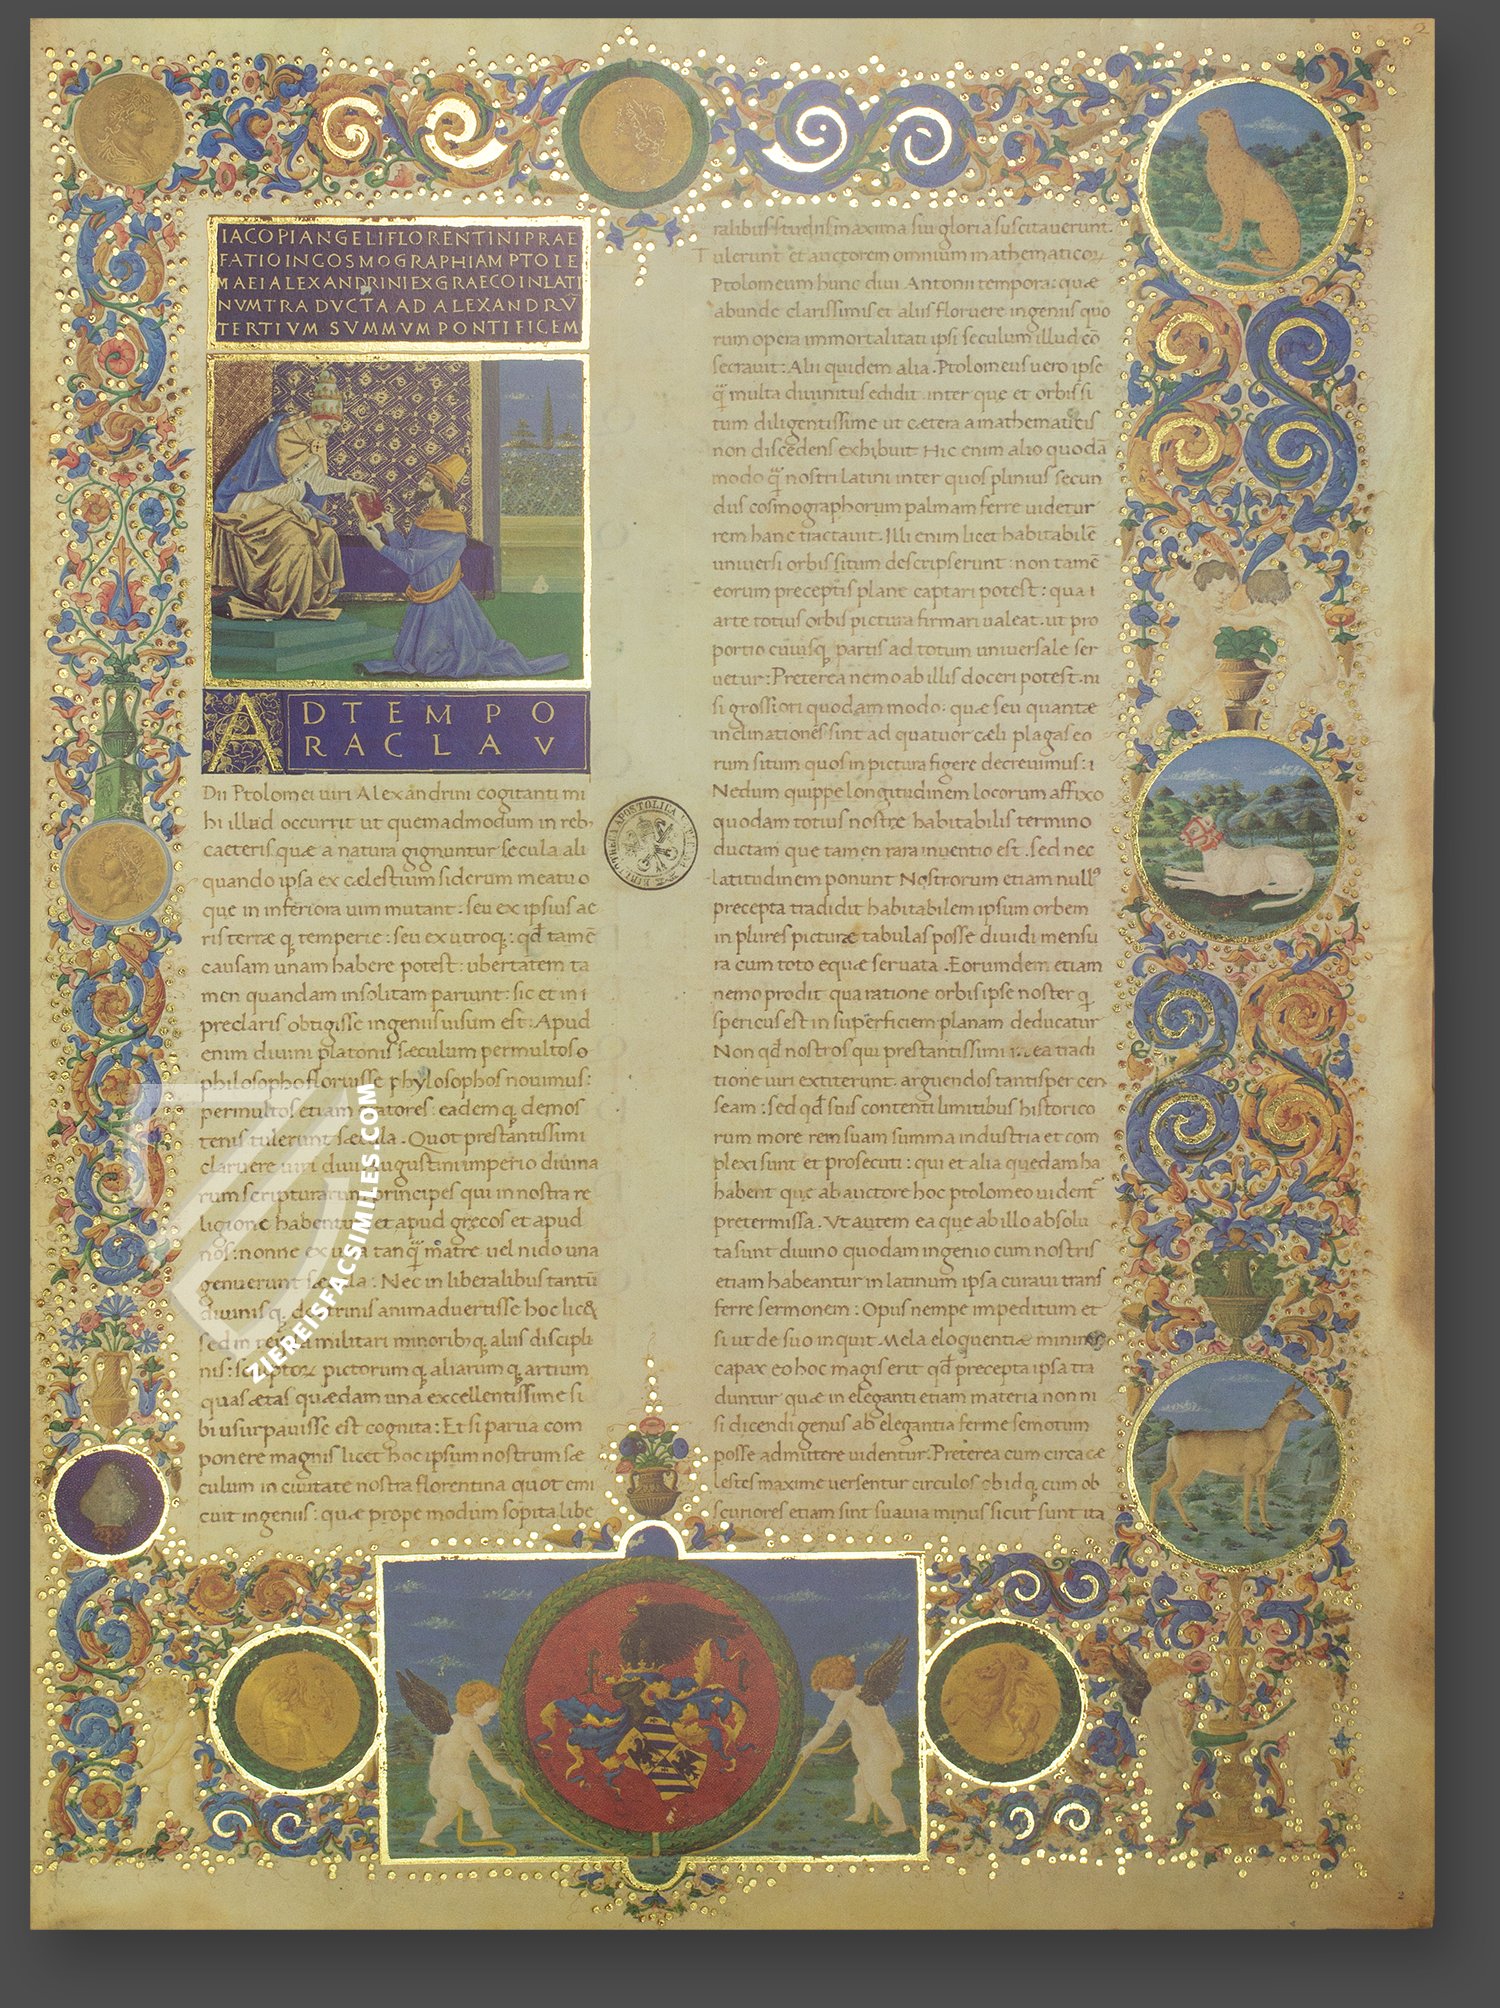 IACOPI ANGELI FLORENTINI PRAE
FATIO IN COSMOGRAPHIAM PTOLE
MAEI ALEXANDRINI EX GRAECO IN LATI
NVM TRADVCTA AD ALEXANDRṼ
TERTIVM SVMMVM PONTIFICEM
AD TEMPO
RA CLAV
Dii Ptolomei uiri Alexandrini cogitanti mi
hi illud occurrit ut quemadmodum in reb,
caeteris quæ a natura gignuntur secula ali
quando ipsa ex cælestium siderum meatu o
que in inferiora uim mutant. seu ex ipsius ae
ris terræ q, temperie: seu ex utroq: qđ tamē
causam unam habere potest: ubertatem ta
men quandam insolitam pariunt: sic et in i
preclaris obtigisse ingeniis uisum est: Apud
enim diuini platonis sæculum permultos o
philosopho floruisse phylosophos nouimus:
permultos etiam oratores: eadem q, demos
tenis tulerunt sæcula. Quot prestantissimi
claruere uiri diui augustini imperio diuina
rum scripturarum principes qui in nostra re
ligione habentur et apud græcos et apud
nos: nonne ex una tanq̃ matre uel nido una
genuerunt sæcula: Nec in liberalibus tantũ
diuinisq, doctrinis animaduertisse hoc lic&
sed in re militari minorib, q, aliis discipli
nis: sculptoꝝ pictorum q, aliarum q, artium
quas ætas quædam una excellentissime si
bi usurpauisse est cognita: Et si parua com
ponere magnis licet hoc ipsum nostrum sæ
culum in ciuitate nostra florentina quot emi
cuit ingeniis: quæ prope modum sopita libe
ralibus studiis maxima sui gloria suscitauerunt.
Tulerunt et auctorem omnium mathematicoꝝ
Ptolomeum hunc diui Antonii tempora: quæ
abunde clarissimis et aliis floruere ingeniis quo
rum opera immortalitati ipsi seculum illud cō
secrauit: Alii quidem alia. Ptolomeus uero ipse
q̃ multa diuinitus edidit. inter que et orbis si
tum diligentissime ut cætera a mathematicis
non discedens exhibuit Hic enim alio quodā
modo q̃ nostri latini inter quos plinius secun
dus cosmographorum palmam ferre uidetur
rem hanc tractauit. Illi enim licet habitabilē
uniuersi orbis situm descripserunt: non tamē
eorum preceptis plane captari potest: qua i
arte totius orbis pictura firmari ualeat. ut pro
portio cuiusq, partis ad totum uniuersale ser
uetur: Preterea nemo ab illis doceri potest. ni
si grossiori quodam modo: quæ seu quantæ
inclinationes sint ad quatuor cæli plagas eo
rum situm quos in pictura figere decreuimus: i
Nedum quippe longitudinem locorum affixo
quodam totius nostre habitabilis termino
ductam que tamen rara inuentio est. sed nec
latitudinem ponunt Nostrorum etiam null⁹
precepta tradidit habitabilem ipsum orbem
in plures picturæ tabulas posse diuidi mensu
ra cum toto equæ seruata. Eorumdem etiam
nemo prodit qua ratione orbis ipse noster q,
spericus est in superficiem planam deducatur
Non qđ nostros qui prestantissimi in ea tradi
tione uiri extiterunt. arguendos tantisper cen
seam: sed qđ suis contenti limitibus historico
rum more rem suam summa industria et com
plexi sunt et prosecuti: qui et alia quedam ha
habent quæ ab auctore hoc ptolomeo uident
pretermissa. Vt autem ea que ab illo absolu
ta sunt diuino quodam ingenio cum nostris
etiam habeantur in latinum ipsa curaui trans
ferre sermonem: Opus nempe impeditum et
si ut de suo inquit Mela eloquentiæ minime
capax eo hoc magis erit qđ precepta ipsa tra
duntur quæ in eleganti etiam materia non ni
si dicendi genus ab elegantia ferme semotum
posse admittere uidentur. Preterea cum circa cæ
lestes maxime uersentur circulos ob id q, cum ob
scuriores etiam sint suauia minus sicut sunt ita
ZIEREISFACSIMILES.COM
2